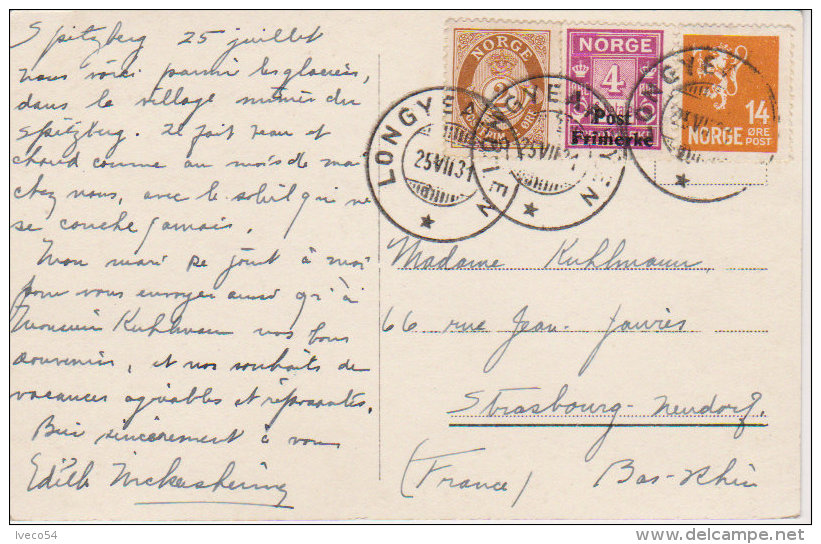 Spitzberg 25 juillet
nous voici parmi les glaciers,
dans le village minier du
Spitzberg. Il fait beau et
chaud comme au mois de mai
chez nous, avec le soleil qui ne
se couche jamais.
Mon mari se joint à moi
pour vous envoyer ainsi qu'à
Monsieur Kuhlmann nos bons
souvenirs, et nos souhaits de
vacances agréables et reposantes.
Bien sincèrement à vous
Edith
NORGE
2
ØRE
NORGE
4
Post
Frimerke
14
NORGE ØRE
POST
LONGYEARBYEN
25 VII 31
25 VII 31
Madame Kuhlmann,
66 rue Jean-Jaurès
Strasbourg-Neudorf.
(France) Bas-Rhin
Iveco54
delcampe.net